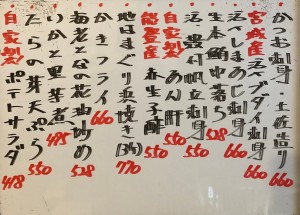 かつお刺身・土佐造り 660
宮城産活〆ブダイ刺身 660
活〆しまあじ刺身 660
生本鮪中落ち 528
活〆貝付帆立刺身 550
自家製あん肝 550
能登産春生子酢 550
地はまぐり浜焼き(3ヶ) 770
かきフライ 660
海老となの花油炒め 528
いかと里芋煮 495
たらの芽天ぷら 550
自家製ポテトサラダ 418